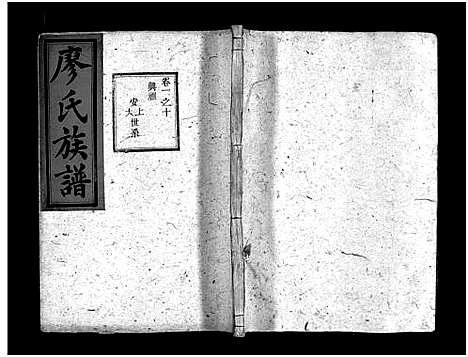 廖氏族譜
卷一之十
興祖
安上世系
大